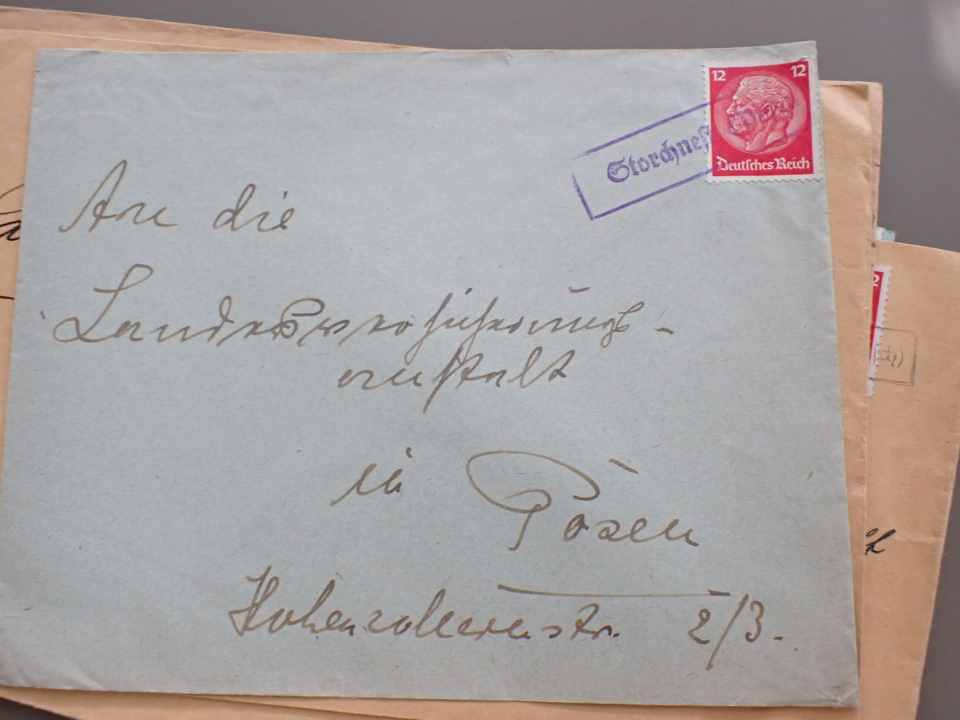 12 12
Deutsches Reich
Storchnest
An die
Landesversicherungs-
anstalt
in Posen
Hohenzollernstr. 2/3.